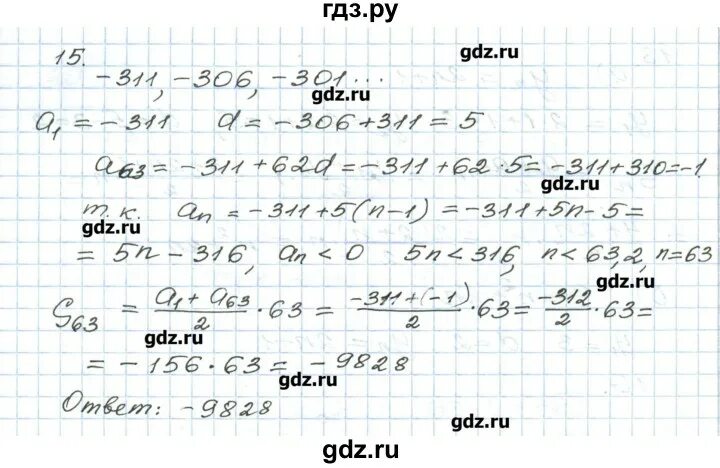 гдз.ру
15.
gdz.ru
-311, -306, -301...
gdz.ru
a₁ = -311 d = -306+311 = 5
a₆₃ = -311+62d = -311+62·5 = -311+310 = -1.
gdz.ru
т.к. aₙ = -311+5(n-1) = -311+5n-5 =
gdz.ru
= 5n - 316, aₙ < 0 5n < 316, n < 63,2, n=63
gdz.ru
S₆₃ = (a₁ + a₆₃)/2 · 63 = (-311+(-1))/2 · 63 = -312/2 · 63 =
gdz.ru
= -156·63 = -9828
gdz.ru
Ответ: -9828
gdz.ru
gdz.ru